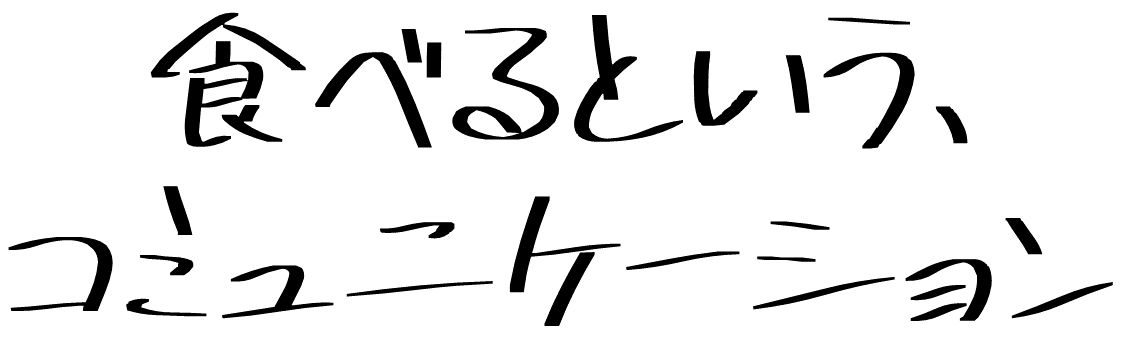 食べるという、
コミュニケーション